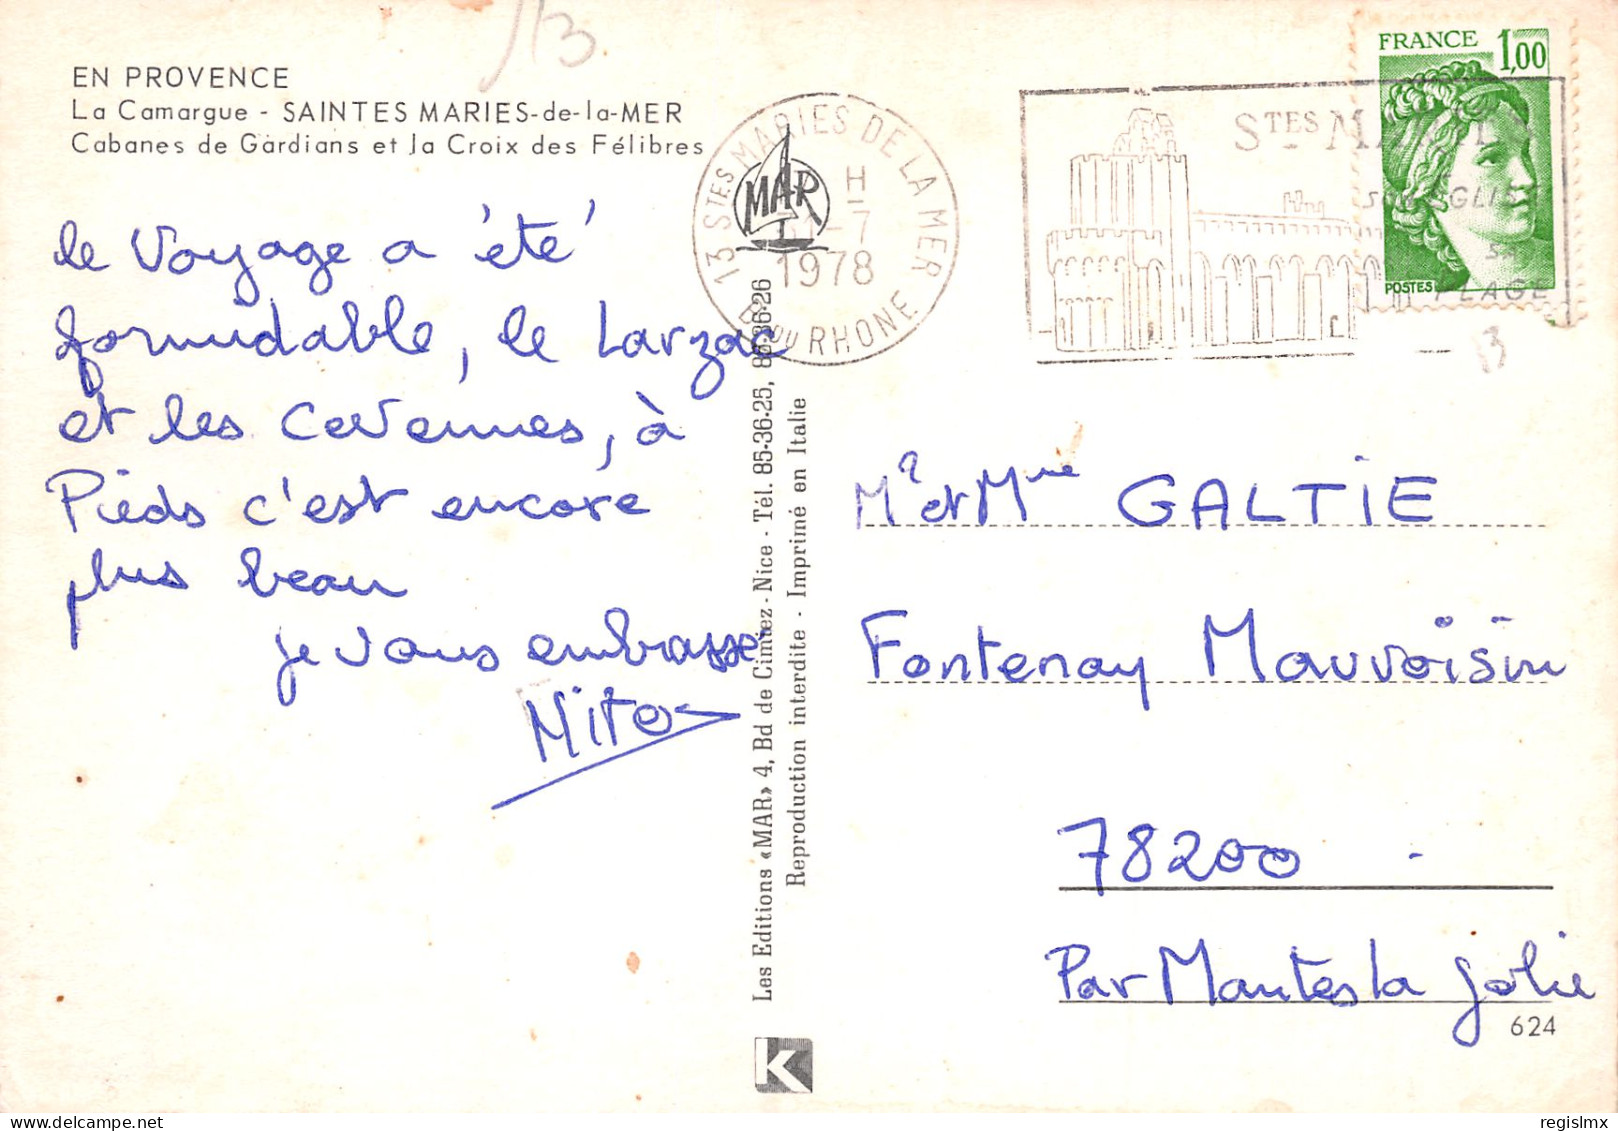 13
EN PROVENCE
La Camargue - SAINTES MARIES-de-la-MER
Cabanes de Gardians et la Croix des Félibres
le Voyage a été
formidable, le Larzac
et les Cevennes, à
Pieds c'est encore
plus beau
je vous embrasse
Mito
13 STES MARIES DE LA MER
H
31-7
1978
B. DU RHONE
MAR
STES MARIES
SON EGLISE
SA
PLAGE
FRANCE 1,00
POSTES
13
Les Editions «MAR» 4, Bd de Cimiez - Nice - Tél. 85-36-25, 85-36-26
Reproduction interdite - Imprimé en Italie
Mr et Mme GALTIE
Fontenay Mauvoisin
78200
Par Mantes la Jolie
624
K
regislmx